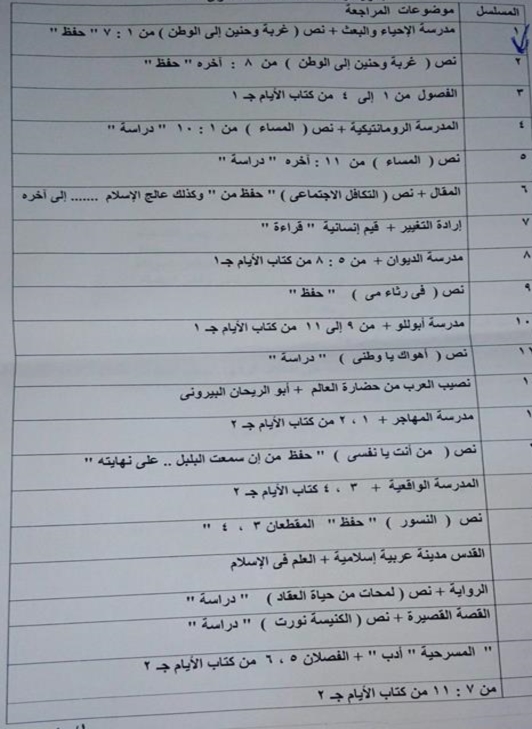 المسلسل موضوعات المراجعة
١ مدرسة الإحياء والبعث + نص ( غربة وحنين إلى الوطن ) من ١ : ٧ " حفظ "
٢ نص ( غربة وحنين إلى الوطن ) من ٨ : أخره " حفظ "
٣ الفصول من ١ إلى ٤ من كتاب الأيام جـ ١
٤ المدرسة الرومانتيكية + نص ( المساء ) من ١ : ١٠ " دراسة "
٥ نص ( المساء ) من ١١ : أخره " دراسة "
٦ المقال + نص ( التكافل الاجتماعى ) " حفظ من " وكذلك عالج الإسلام ....... إلى أخره
٧ إرادة التغيير + قيم إنسانية " قراءة "
٨ مدرسة الديوان + من ٥ : ٨ من كتاب الأيام جـ ١
٩ نص ( فى رثاء مى ) " حفظ "
١٠ مدرسة أبوللو + من ٩ إلى ١١ من كتاب الأيام جـ ١
١١ نص ( أهواك يا وطنى ) " دراسة "
١ نصيب العرب من حضارة العالم + أبو الريحان البيرونى
١ مدرسة المهاجر + ١ ، ٢ من كتاب الأيام جـ ٢
نص ( من أنت يا نفسى ) " حفظ من إن سمعت البلبل .. على نهايته "
المدرسة الواقعية + ٣ ، ٤ كتاب الأيام جـ ٢
نص ( النسور ) " حفظ " المقطعان ٣ ، ٤ "
القدس مدينة عربية إسلامية + العلم فى الإسلام
الرواية + نص ( لمحات من حياة العقاد ) " دراسة "
القصة القصيرة + نص ( الكنيسة نورت ) " دراسة "
" المسرحية " أدب " + الفصلان ٥ ، ٦ من كتاب الأيام جـ ٢
من ٧ : ١١ من كتاب الأيام جـ ٢